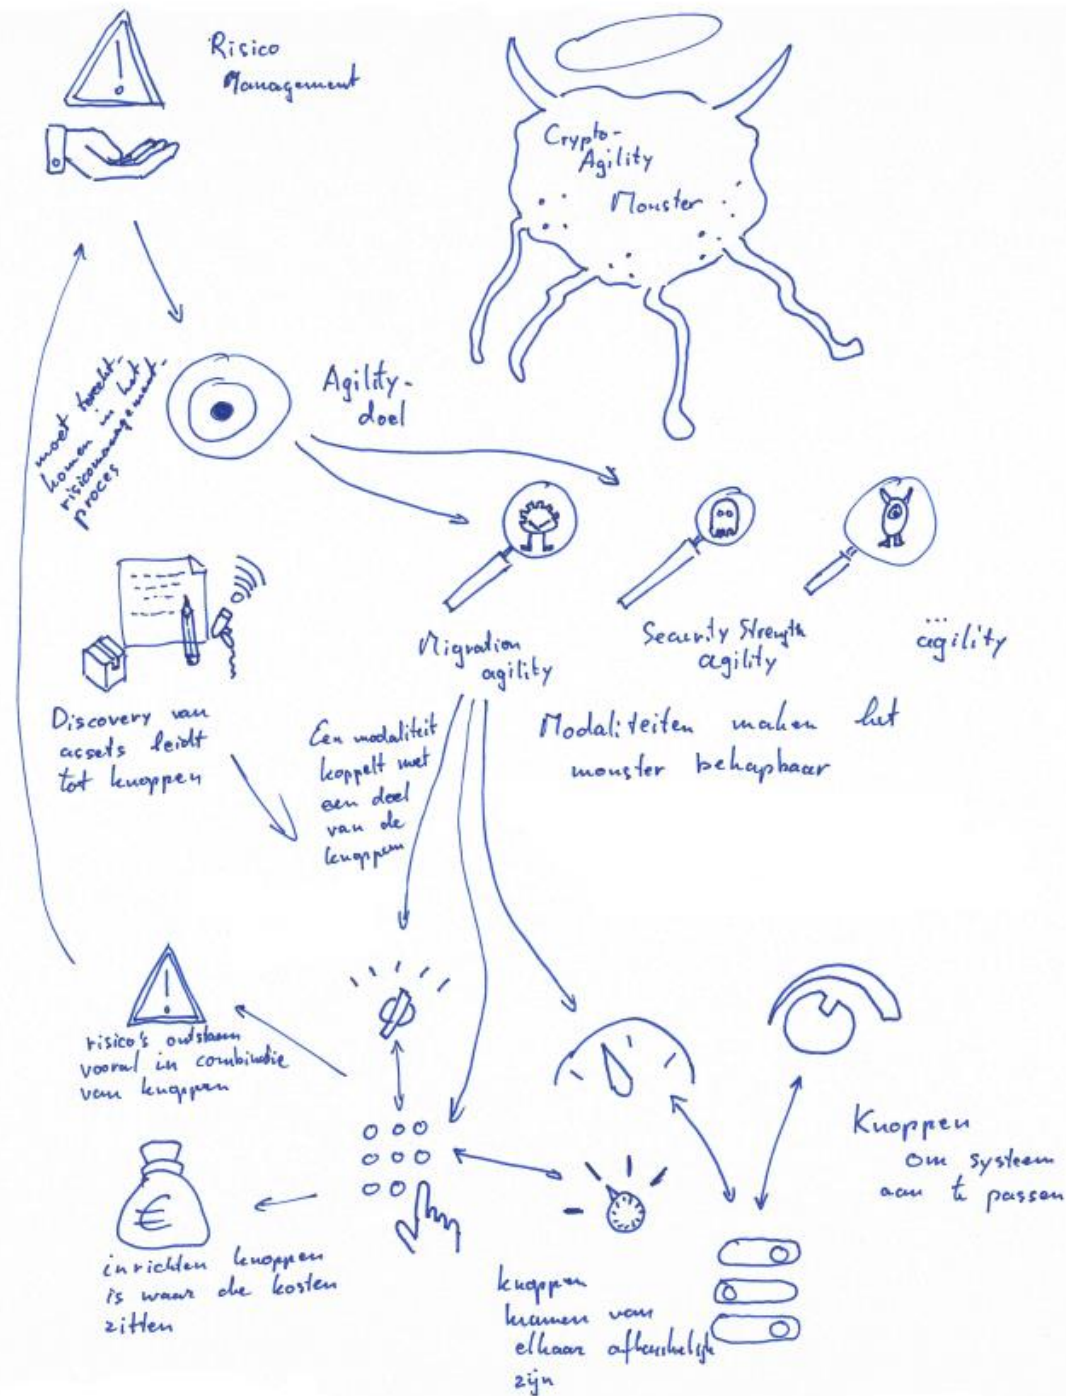 Risico
Management
Crypto-
Agility
Monster
moet terecht-
komen in het
risicomanagement-
proces
Agility-
doel
Migration
agility
Security Strength
agility
...
agility
Discovery van
assets leidt
tot knoppen
Een modaliteit
koppelt met
een doel
van de
knoppen
Modaliteiten maken het
monster behapbaar
risico's ontstaan
vooral in combinatie
van knoppen
Knoppen
om systeem
aan te passen
€
inrichten knoppen
is waar de kosten
zitten
knoppen
kunnen van
elkaar afhankelijk
zijn